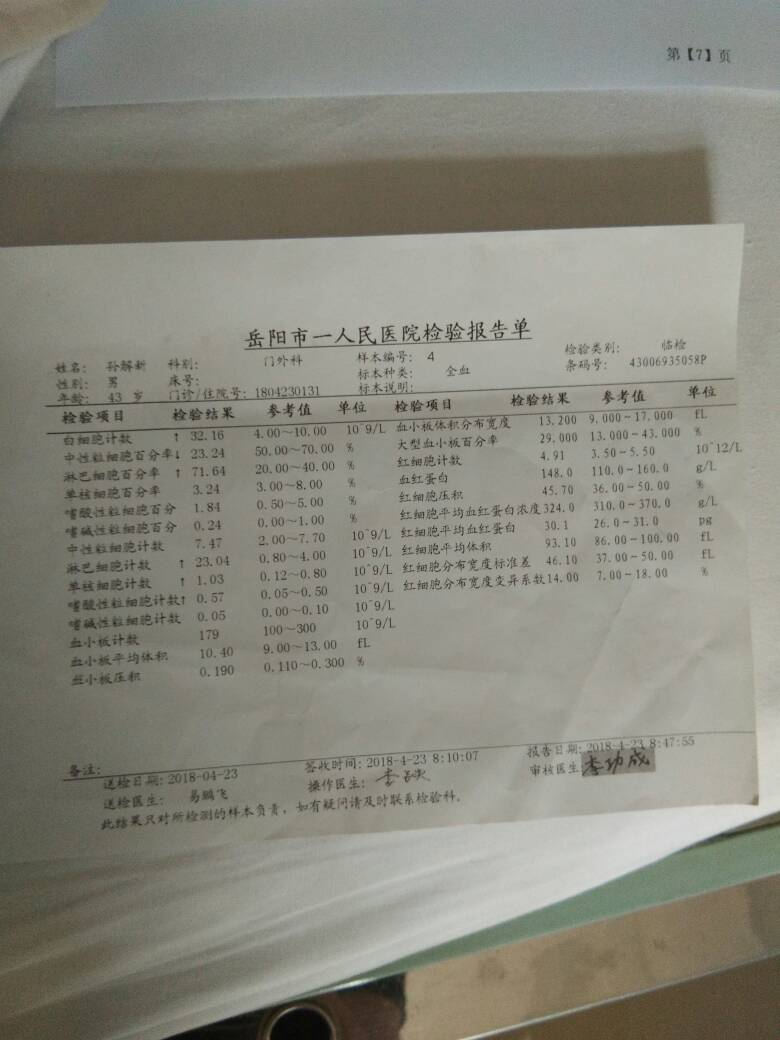 第【7】页
岳阳市一人民医院检验报告单
姓名: 孙解新 科别: 门外科 样本编号: 4 检验类别: 临检
性别: 男 床号: 标本种类: 全血 条码号: 43006935058P
年龄: 43 岁 门诊/住院号: 1804230131 标本说明:
检验项目 检验结果 参考值 单位 检验项目 检验结果 参考值 单位
白细胞计数 ↑ 32.16 4.00~10.00 10^9/L 血小板体积分布宽度 13.200 9.000~17.000 fL
中性粒细胞百分率↓ 23.24 50.00~70.00 % 大型血小板百分率 29.000 13.000~43.000 %
淋巴细胞百分率 ↑ 71.64 20.00~40.00 % 红细胞计数 4.91 3.50~5.50 10^12/L
单核细胞百分率 3.24 3.00~8.00 % 血红蛋白 148.0 110.0~160.0 g/L
嗜酸性粒细胞百分 1.84 0.50~5.00 % 红细胞压积 45.70 36.00~50.00 %
嗜碱性粒细胞百分 0.24 0.00~1.00 % 红细胞平均血红蛋白浓度 324.0 310.0~370.0 g/L
中性粒细胞计数 7.47 2.00~7.70 10^9/L 红细胞平均血红蛋白 30.1 26.0~31.0 pg
淋巴细胞计数 ↑ 23.04 0.80~4.00 10^9/L 红细胞平均体积 93.10 86.00~100.00 fL
单核细胞计数 ↑ 1.03 0.12~0.80 10^9/L 红细胞分布宽度标准差 46.10 37.00~50.00 fL
嗜酸性粒细胞计数↑ 0.57 0.05~0.50 10^9/L 红细胞分布宽度变异系数 14.00 7.00~18.00 %
嗜碱性粒细胞计数 0.05 0.00~0.10 10^9/L
血小板计数 179 100~300 10^9/L
血小板平均体积 10.40 9.00~13.00 fL
血小板压积 0.190 0.110~0.300 %
备注:
送检日期: 2018-04-23 签收时间: 2018-4-23 8:10:07 报告日期: 2018-4-23 8:47:55
送检医生: 易鹏飞 操作医生: 审核医生 李功成
此结果只对所检测的样本负责，如有疑问请及时联系检验科。